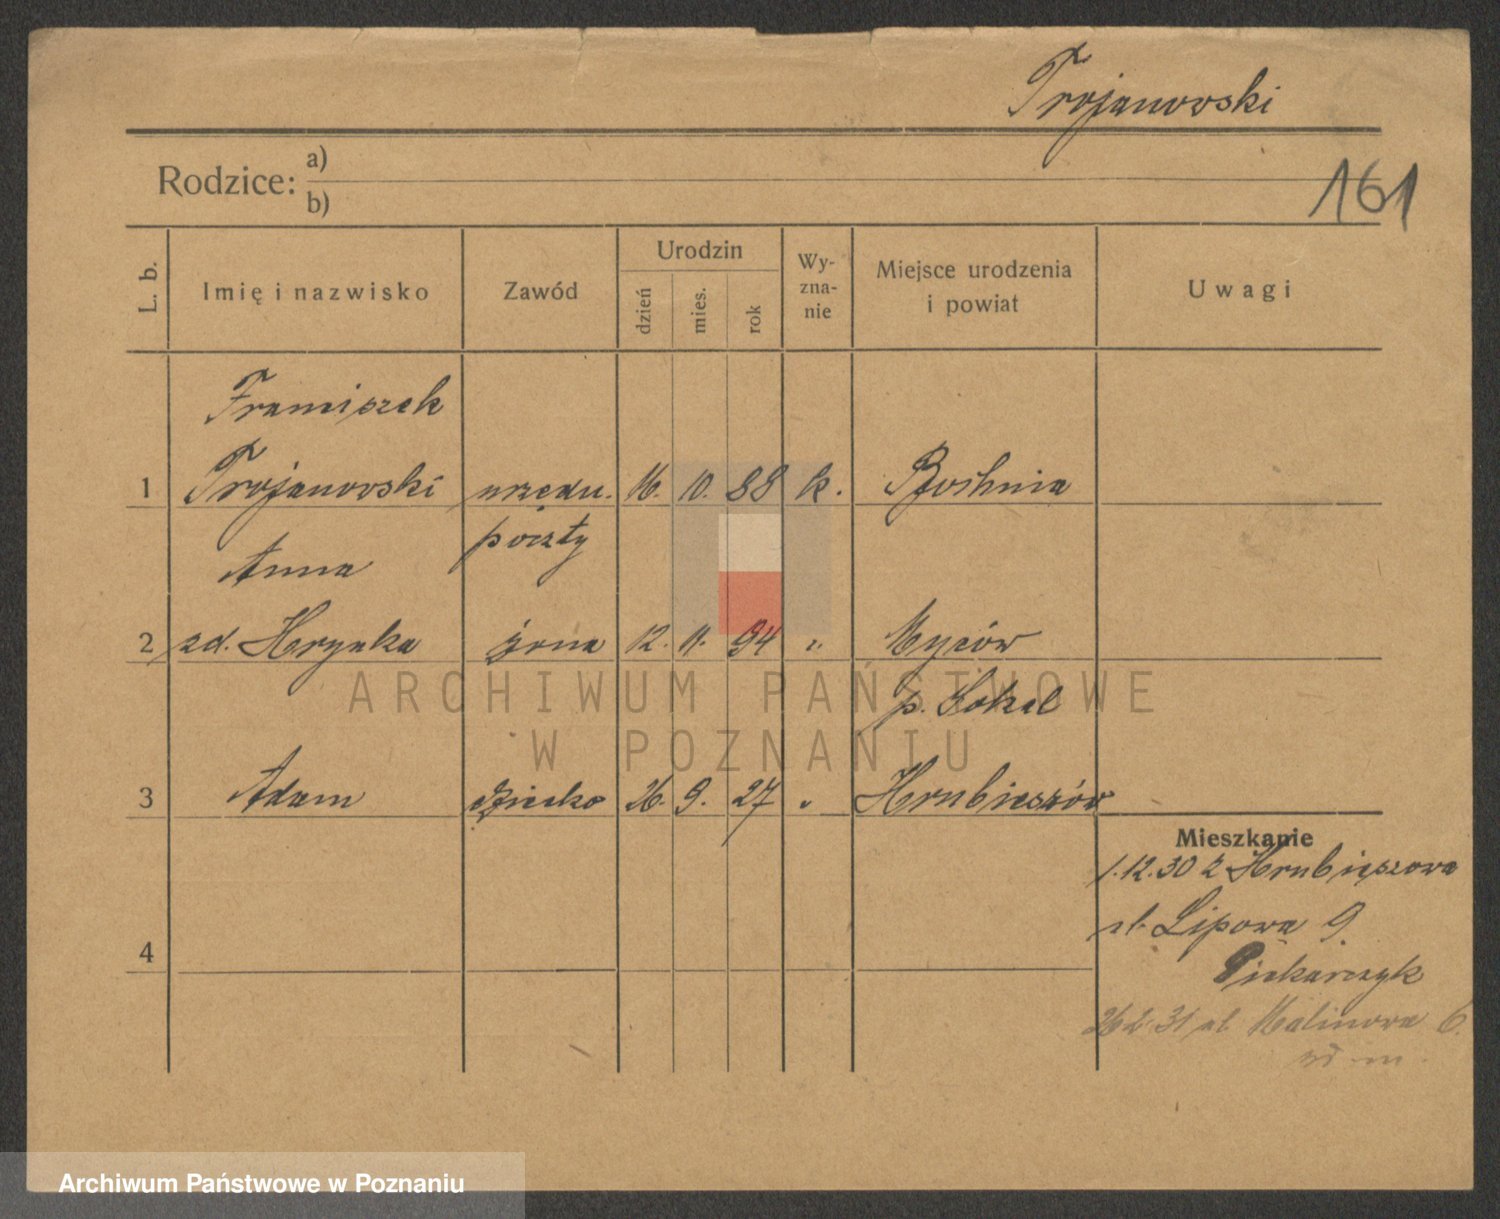 Trojanowski
Rodzice: a)
b)
161
L. b.
Imię i nazwisko
Zawód
Urodzin
dzień
mies.
rok
Wy-
zna-
nie
Miejsce urodzenia
i powiat
Uwagi
Franciszek
1 Trojanowski urzędn. 16. 10. 88 k. Bochnia
poczty
Anna
2 zd. Hrynka żona 12. 11. 94 " Myców
p. Sokal
3 Adam dziecko 26. 9. 27 " Hrubieszów
Mieszkanie
1.12.30 z Hrubieszowa
ul. Lipowa 9
4
Piekarczyk
26 2.31 ul. Malinowa 6.
ARCHIWUM PAŃSTWOWE
W POZNANIU
Archiwum Państwowe w Poznaniu